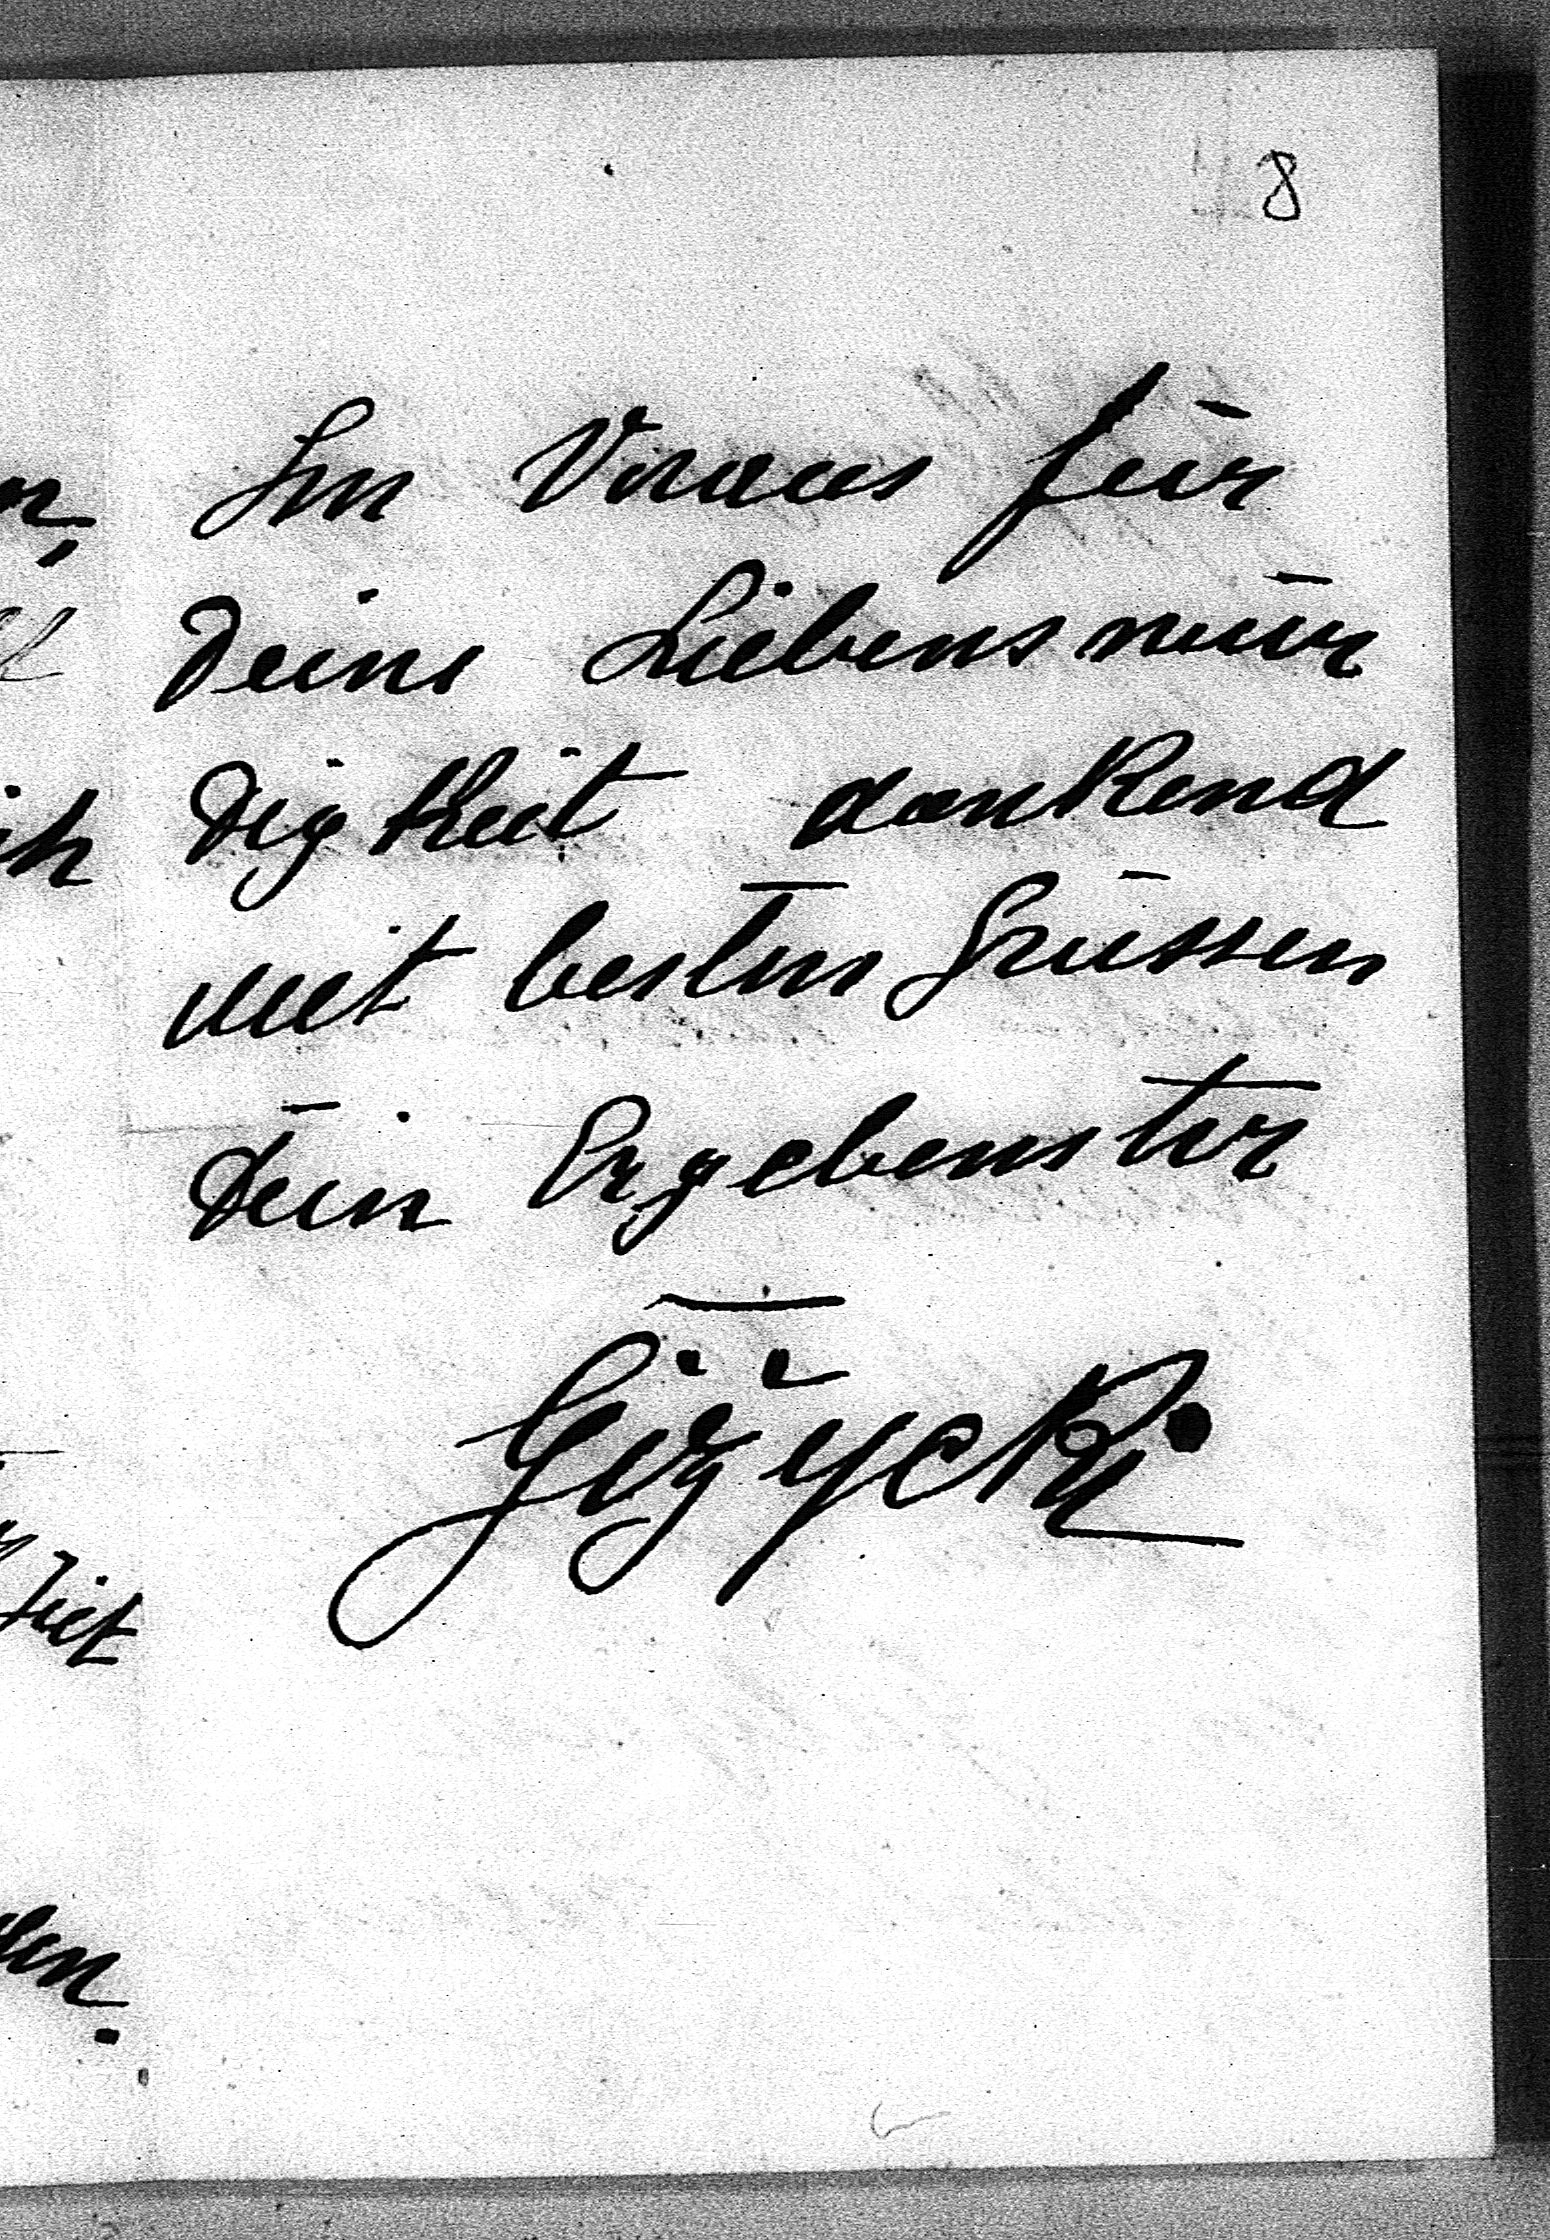 8
Im Voraus für
Deine Liebenswür
digkeit dankend
mit besten Grüssen
Dein Ergebenster
Giżycki